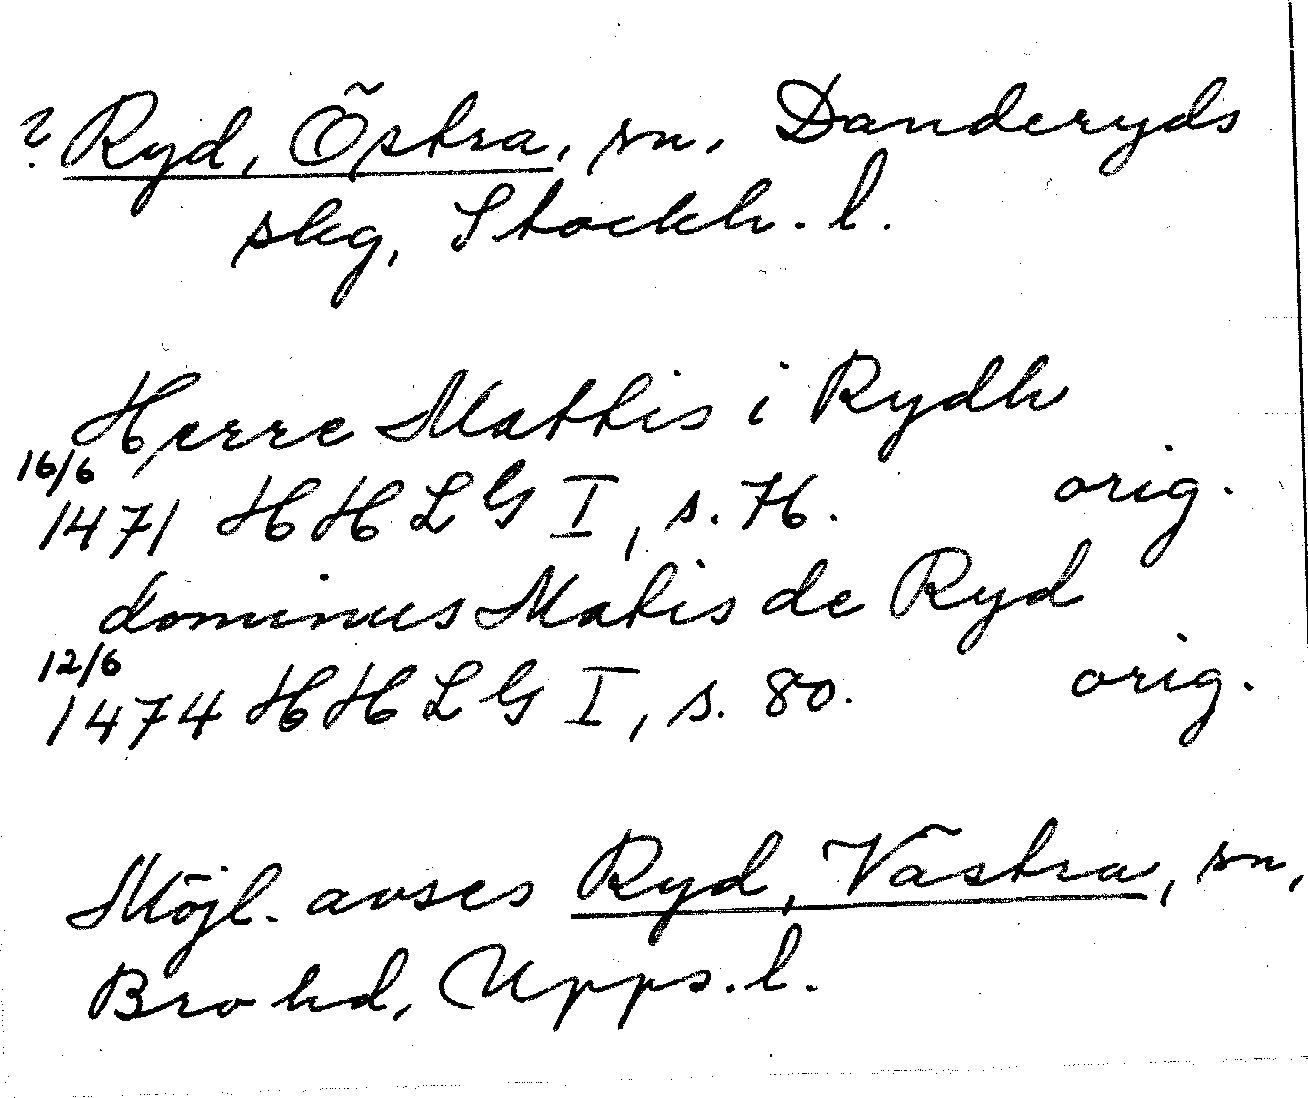 ? Ryd, Östra, sn, Danderyds
skg, Stockh. l.
Herre Mattis i Rydh
16/6
1471 HHLG I, s. 76. orig.
dominus Matis de Ryd
12/6
1474 HHLG I, s. 80. orig.
Möjl. avses Ryd, Västra, sn,
Bro hd, Upps. l.